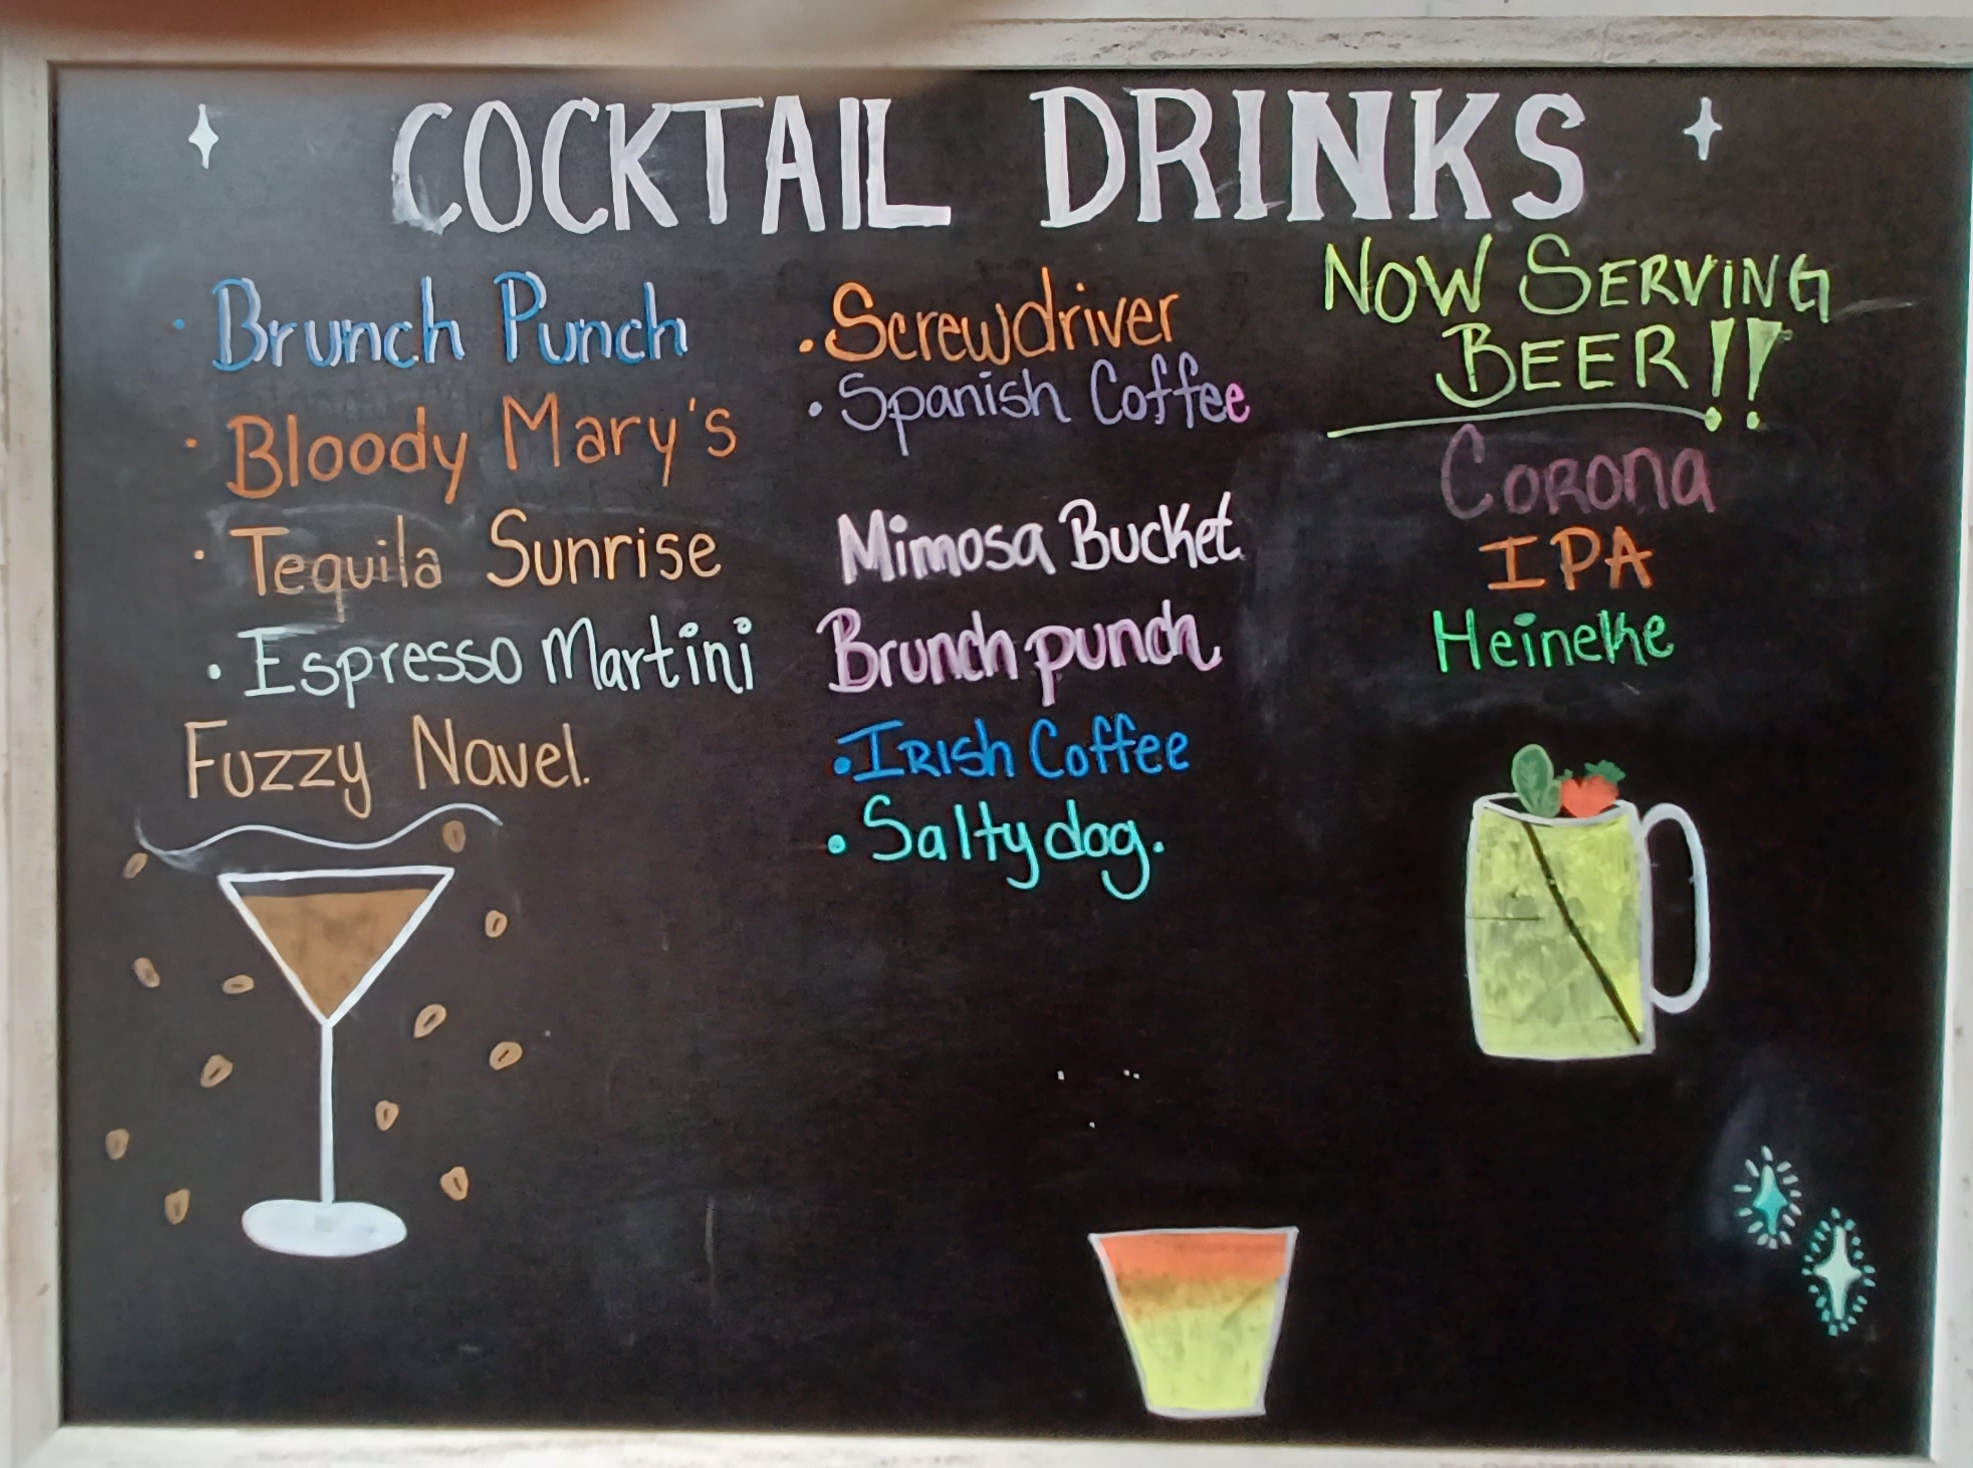 COCKTAIL DRINKS
· Brunch Punch
· Bloody Mary's
· Tequila Sunrise
· Espresso Martini
Fuzzy Navel.
· Screwdriver
· Spanish Coffee
Mimosa Bucket
Brunch punch
· IRISh Coffee
· Salty dog.
NOW SERVING
BEER!!
CORONA
IPA
Heineke